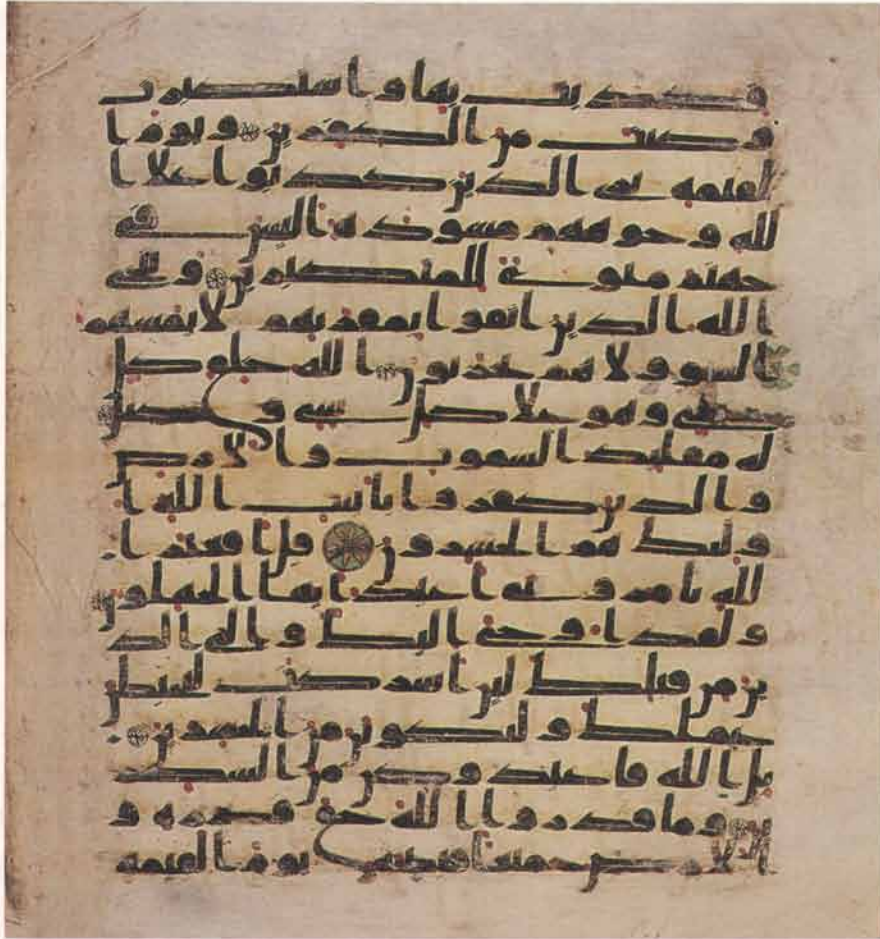 فكذبت بها واستكبرت
وكنت من الكفرين ويوم ا
لقيمة ترى الذين كذبوا على ا
لله وجوههم مسودة اليس في
جهنم مثوى للمتكبرين وينجى
الله الذين اتقوا بمفازتهم لا يمسهم
السو ولا هم يحزنون الله خلق كل
شى وهو على كل شى وكيل
له مقليد السموت والارض
والذين كفروا بايت الله ا
ولئك هم الخسرون قل افغير ا
لله تامرونى اعبد ايها الجهلون
ولقد اوحى اليك والى الذ
ين من قبلك لئن اشركت ليحبطن
عملك ولتكونن من الخسرين
بل الله فاعبد وكن من الشكر
ين وما قدروا الله حق قدره و
الارض جميعا قبضته يوم القيمة